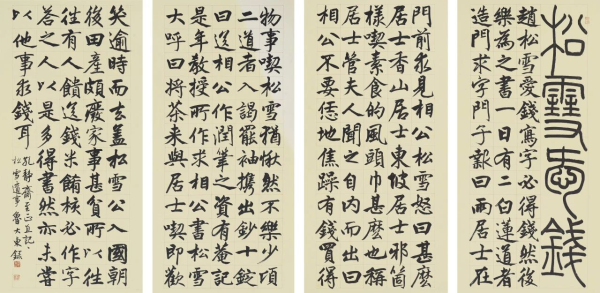 松雪愛錢
趙松雪愛錢寫字必得錢然後
樂為之書一日有二白蓮道者
造門求字門子報曰兩居士在
門前求見相公松雪怒曰甚麼
居士香山居士東坡居士邪箇
樣喫素食的風頭巾甚麼也稱
居士管夫人聞之自內而出曰
相公不要恁地焦躁有錢買得
物事喫松雪猶愀然不樂少頃
二道者入謁罷袖攜出鈔十錠
曰送相公作潤筆之資有庵記
是年教授所作求相公書松雪
大呼曰將茶來與居士喫即歡
笑逾時而去蓋松雪公入國朝
後田產頗廢家事甚貧所以往
往有人饋送錢米餚核必作字
答之人以是多得書然亦未嘗
以他事求錢耳
孔靜齋至正直記
松雪遺事魯大東錄